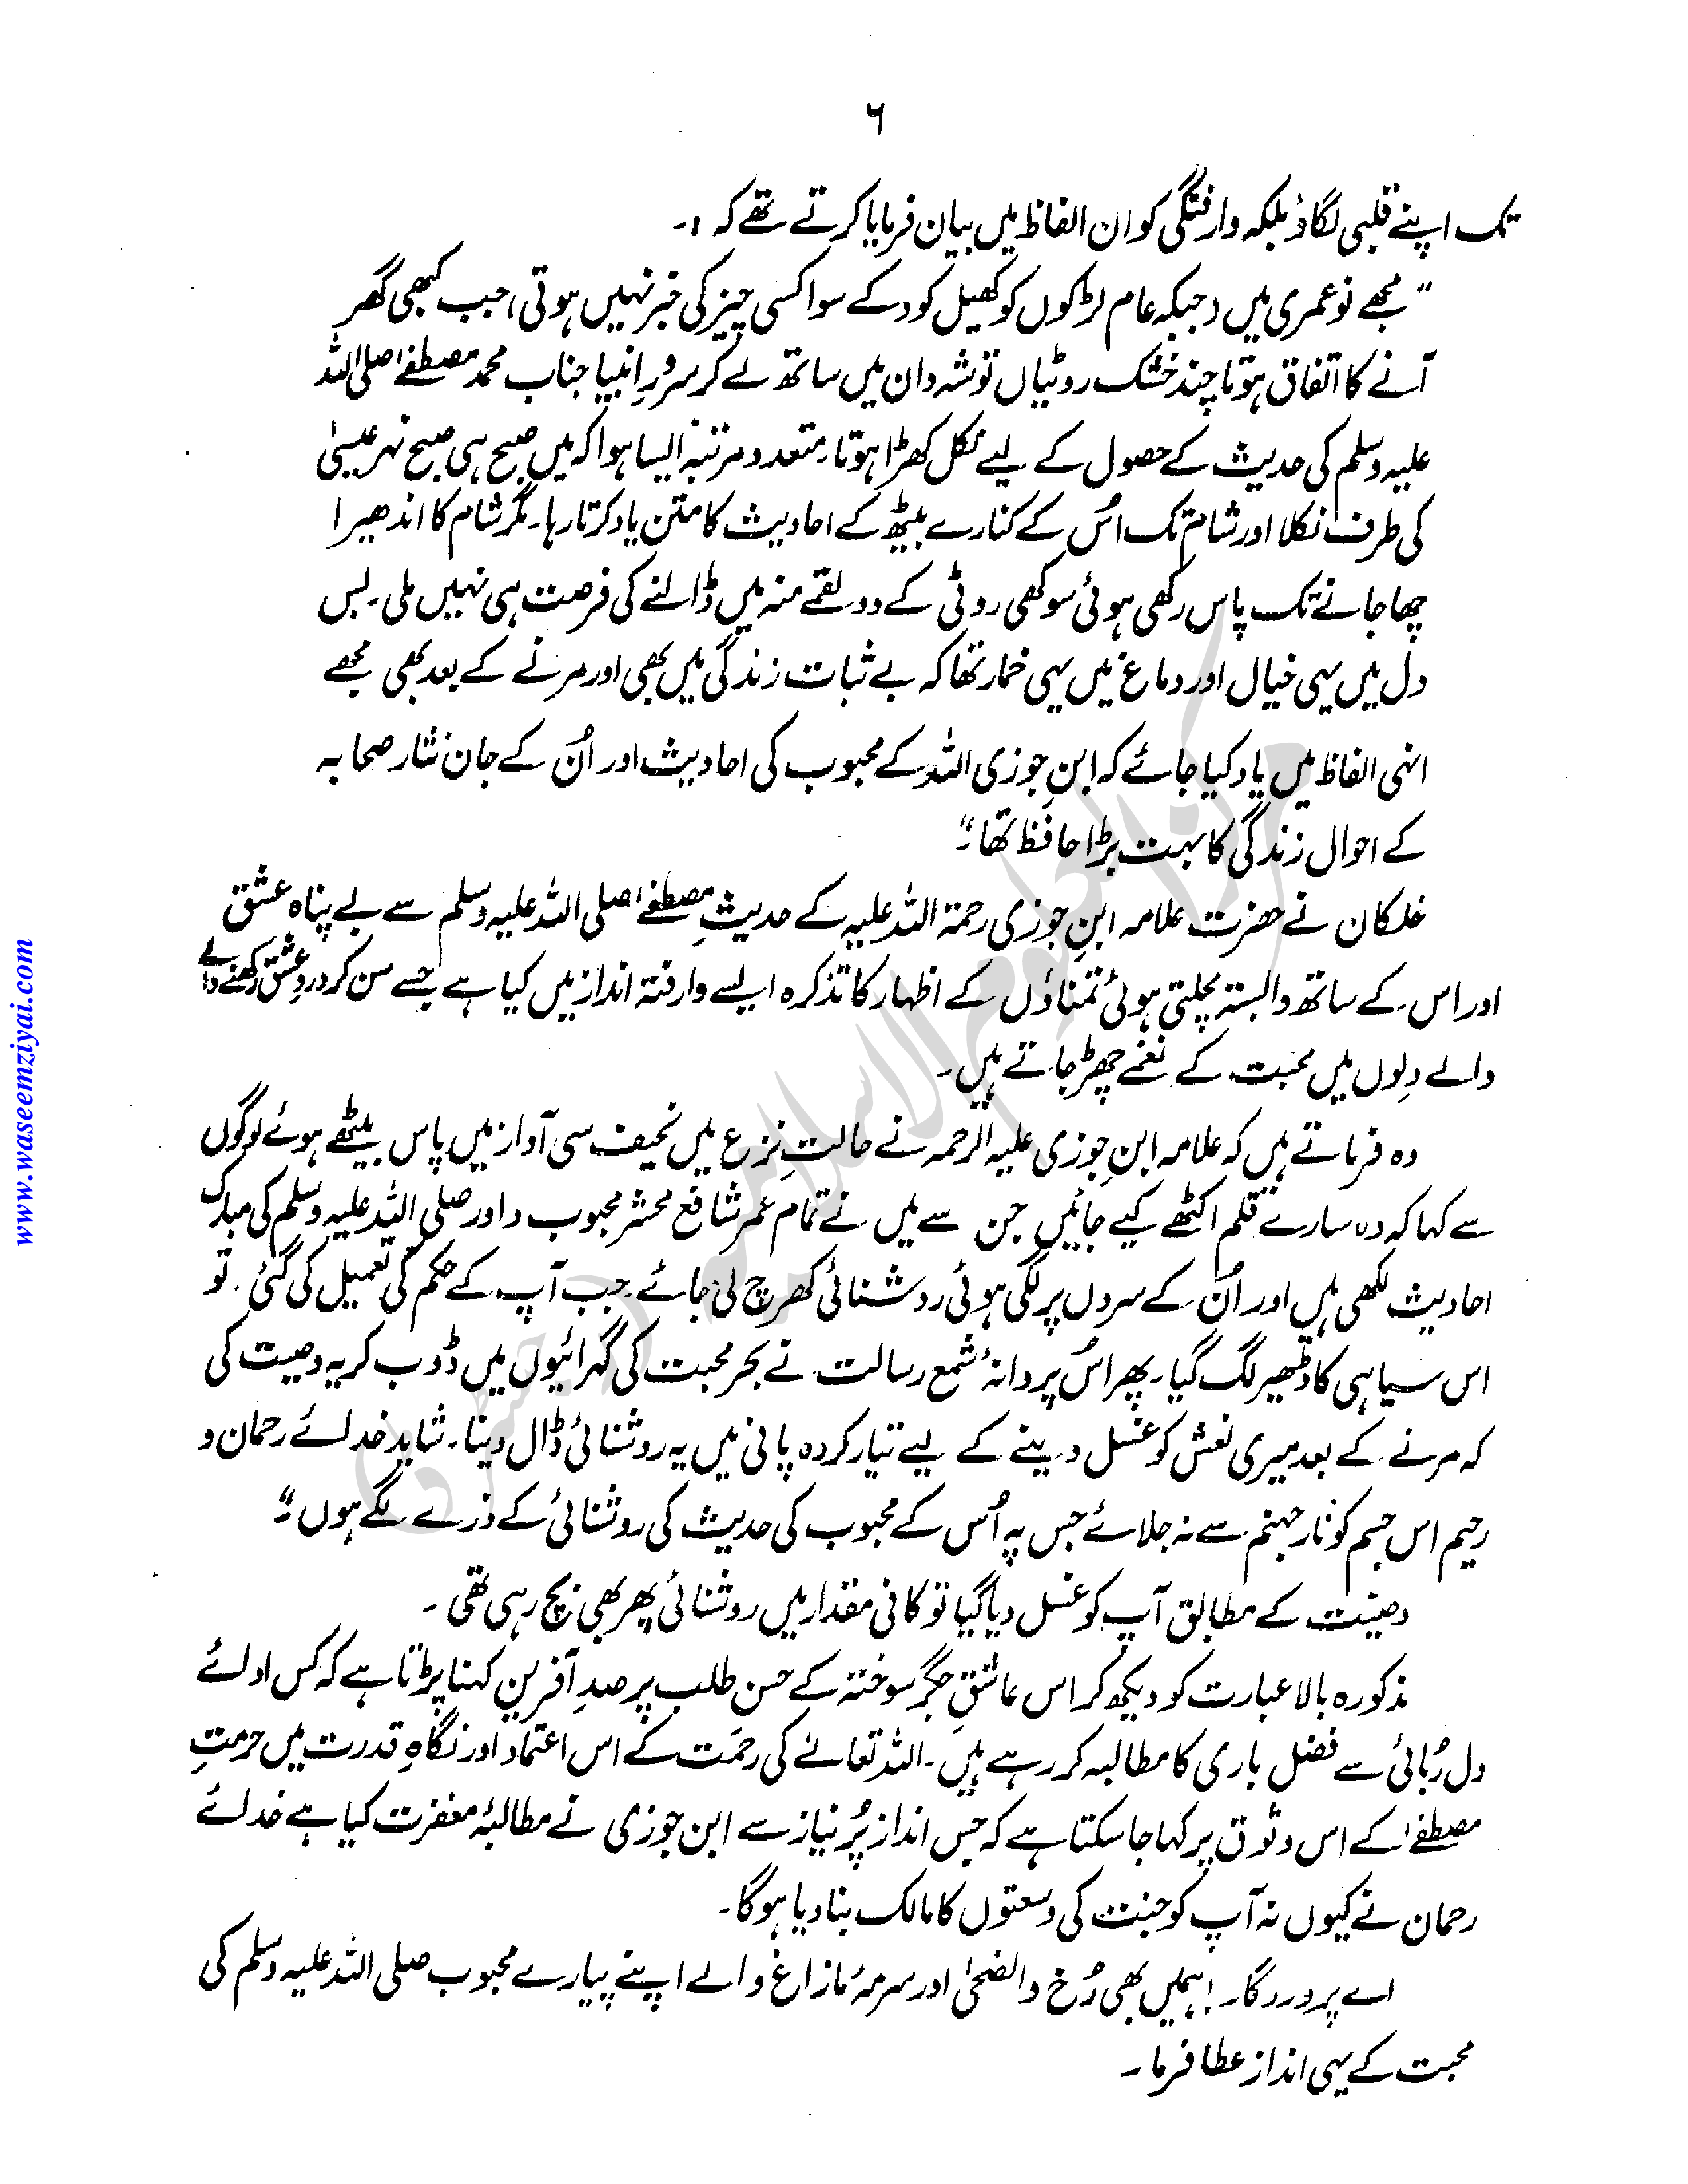 ٦
تک اپنے قلبی لگاؤ بلکہ وارفتگی کو ان الفاظ میں بیان فرمایا کرتے تھے کہ :۔
"مجھے نوعمری میں (جبکہ عام لڑکوں کو کھیل کود کے سوا کسی چیز کی خبر نہیں ہوتی) جب کبھی گھر
آنے کا اتفاق ہوتا چند خشک روٹیاں توشہ دان میں ساتھ لے کر سرورِ انبیا جناب محمد مصطفےٰ صلی اللہ
علیہ وسلم کی حدیث کے حصول کے لیے نکل کھڑا ہوتا۔ متعدد مرتبہ ایسا ہوا کہ میں صبح ہی صبح نہر عیسیٰ
کی طرف نکلا اور شام تک اُس کے کنارے بیٹھ کے احادیث کا متن یاد کرتا رہا۔ مگر شام کا اندھیرا
چھا جانے تک پاس رکھی ہوئی سوکھی روٹی کے دو لقمے منہ میں ڈالنے کی فرصت ہی نہیں ملی۔ بس
دل میں یہی خیال اور دماغ میں یہی خمار تھا کہ بے ثبات زندگی میں بھی اور مرنے کے بعد بھی مجھے
انہی الفاظ میں یاد کیا جائے کہ ابنِ جوزی اللہ کے محبوب کی احادیث اور اُن کے جان نثار صحابہ
کے احوال زندگی کا بہت بڑا حافظ تھا۔"
خلکان نے حضرت علامہ ابنِ جوزی رحمۃ اللہ علیہ کے حدیثِ مصطفےٰ صلی اللہ علیہ وسلم سے بے پناہ عشق
اور اس کے ساتھ وابستہ مچلتی ہوئی تمناؤں کے اظہار کا تذکرہ ایسے وارفتہ انداز میں کیا ہے جسے سن کر دردِ عشق رکھنے والے
والے دِلوں میں محبت کے نغمے چھڑ جاتے ہیں۔
وہ فرماتے ہیں کہ علامہ ابنِ جوزی علیہ الرحمہ نے حالتِ نزع میں نحیف سی آواز میں پاس بیٹھے ہوئے لوگوں
سے کہا کہ وہ سارے قلم اکٹھے کیے جائیں جن سے میں نے تمام عمر شافع محشر محبوب داور صلی اللہ علیہ وسلم کی مبارک
احادیث لکھی ہیں اور اُن کے سروں پر لگی ہوئی روشنائی کھرچ لی جائے۔ جب آپ کے حکم کی تعمیل کی گئی۔ تو
اس سیاہی کا ڈھیر لگ گیا۔ پھر اُس پروانۂ شمع رسالت نے بحر محبت کی گہرائیوں میں ڈوب کر یہ وصیت کی
کہ مرنے کے بعد میری نعش کو غسل دینے کے لیے تیار کردہ پانی میں یہ روشنائی ڈال دینا۔ شاید خدائے رحمان و
رحیم اس جسم کو نار جہنم سے نہ جلائے جس پہ اُس کے محبوب کی حدیث کی روشنائی کے ذرے لگے ہوں۔"
وصیت کے مطابق آپ کو غسل دیا گیا تو کافی مقدار میں روشنائی پھر بھی بچ رہی تھی۔
مذکورہ بالا عبارت کو دیکھ کر اس عاشقِ جگر سوختہ کے حسن طلب پر صد آفرین کہنا پڑتا ہے کہ کس ادائے
دل رُبائی سے فضل باری کا مطالبہ کر رہے ہیں۔ اللہ تعالےٰ کی رحمت کے اس اعتماد اور نگاہِ قدرت میں حرمتِ
مصطفےٰ کے اس وثوق پر کہا جا سکتا ہے کہ جس انداز پُر نیاز سے ابن جوزی نے مطالبۂ مغفرت کیا ہے خدائے
رحمان نے کیوں نہ آپ کو جنت کی وسعتوں کا مالک بنا دیا ہوگا۔
اے پروردگار! ہمیں بھی رُخِ والضحیٰ اور سرمۂ مازاغ والے اپنے پیارے محبوب صلی اللہ علیہ وسلم کی
محبت کے یہی انداز عطا فرما۔
www.waseemziyai.com